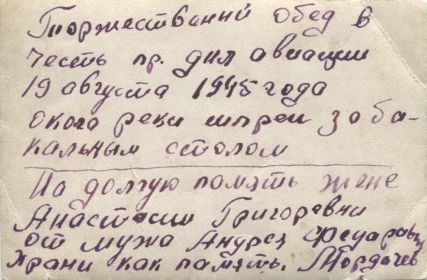 Торжественний обед в
честь пр. дня авиации
19 августа 1945 года
около реки шпреи за ба-
кальным столом
На долгую память жене
Анастасии Григоревни
от мужа Андрея
Храни как память. Мордачев